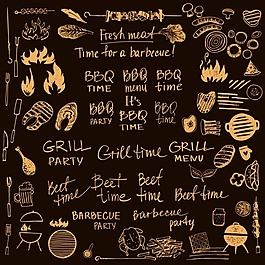 Fresh meat
Time for a barbecue!
BBQ TIME
BBQ menu
BBQ time
BBQ PARTY
It's BBQ TIME
BBQ time
GRILL PARTY
Grill time
GRILL MENU
Beet time
Beet time
Beet time
Beet time
BARBECUE PARTY
barbecue party